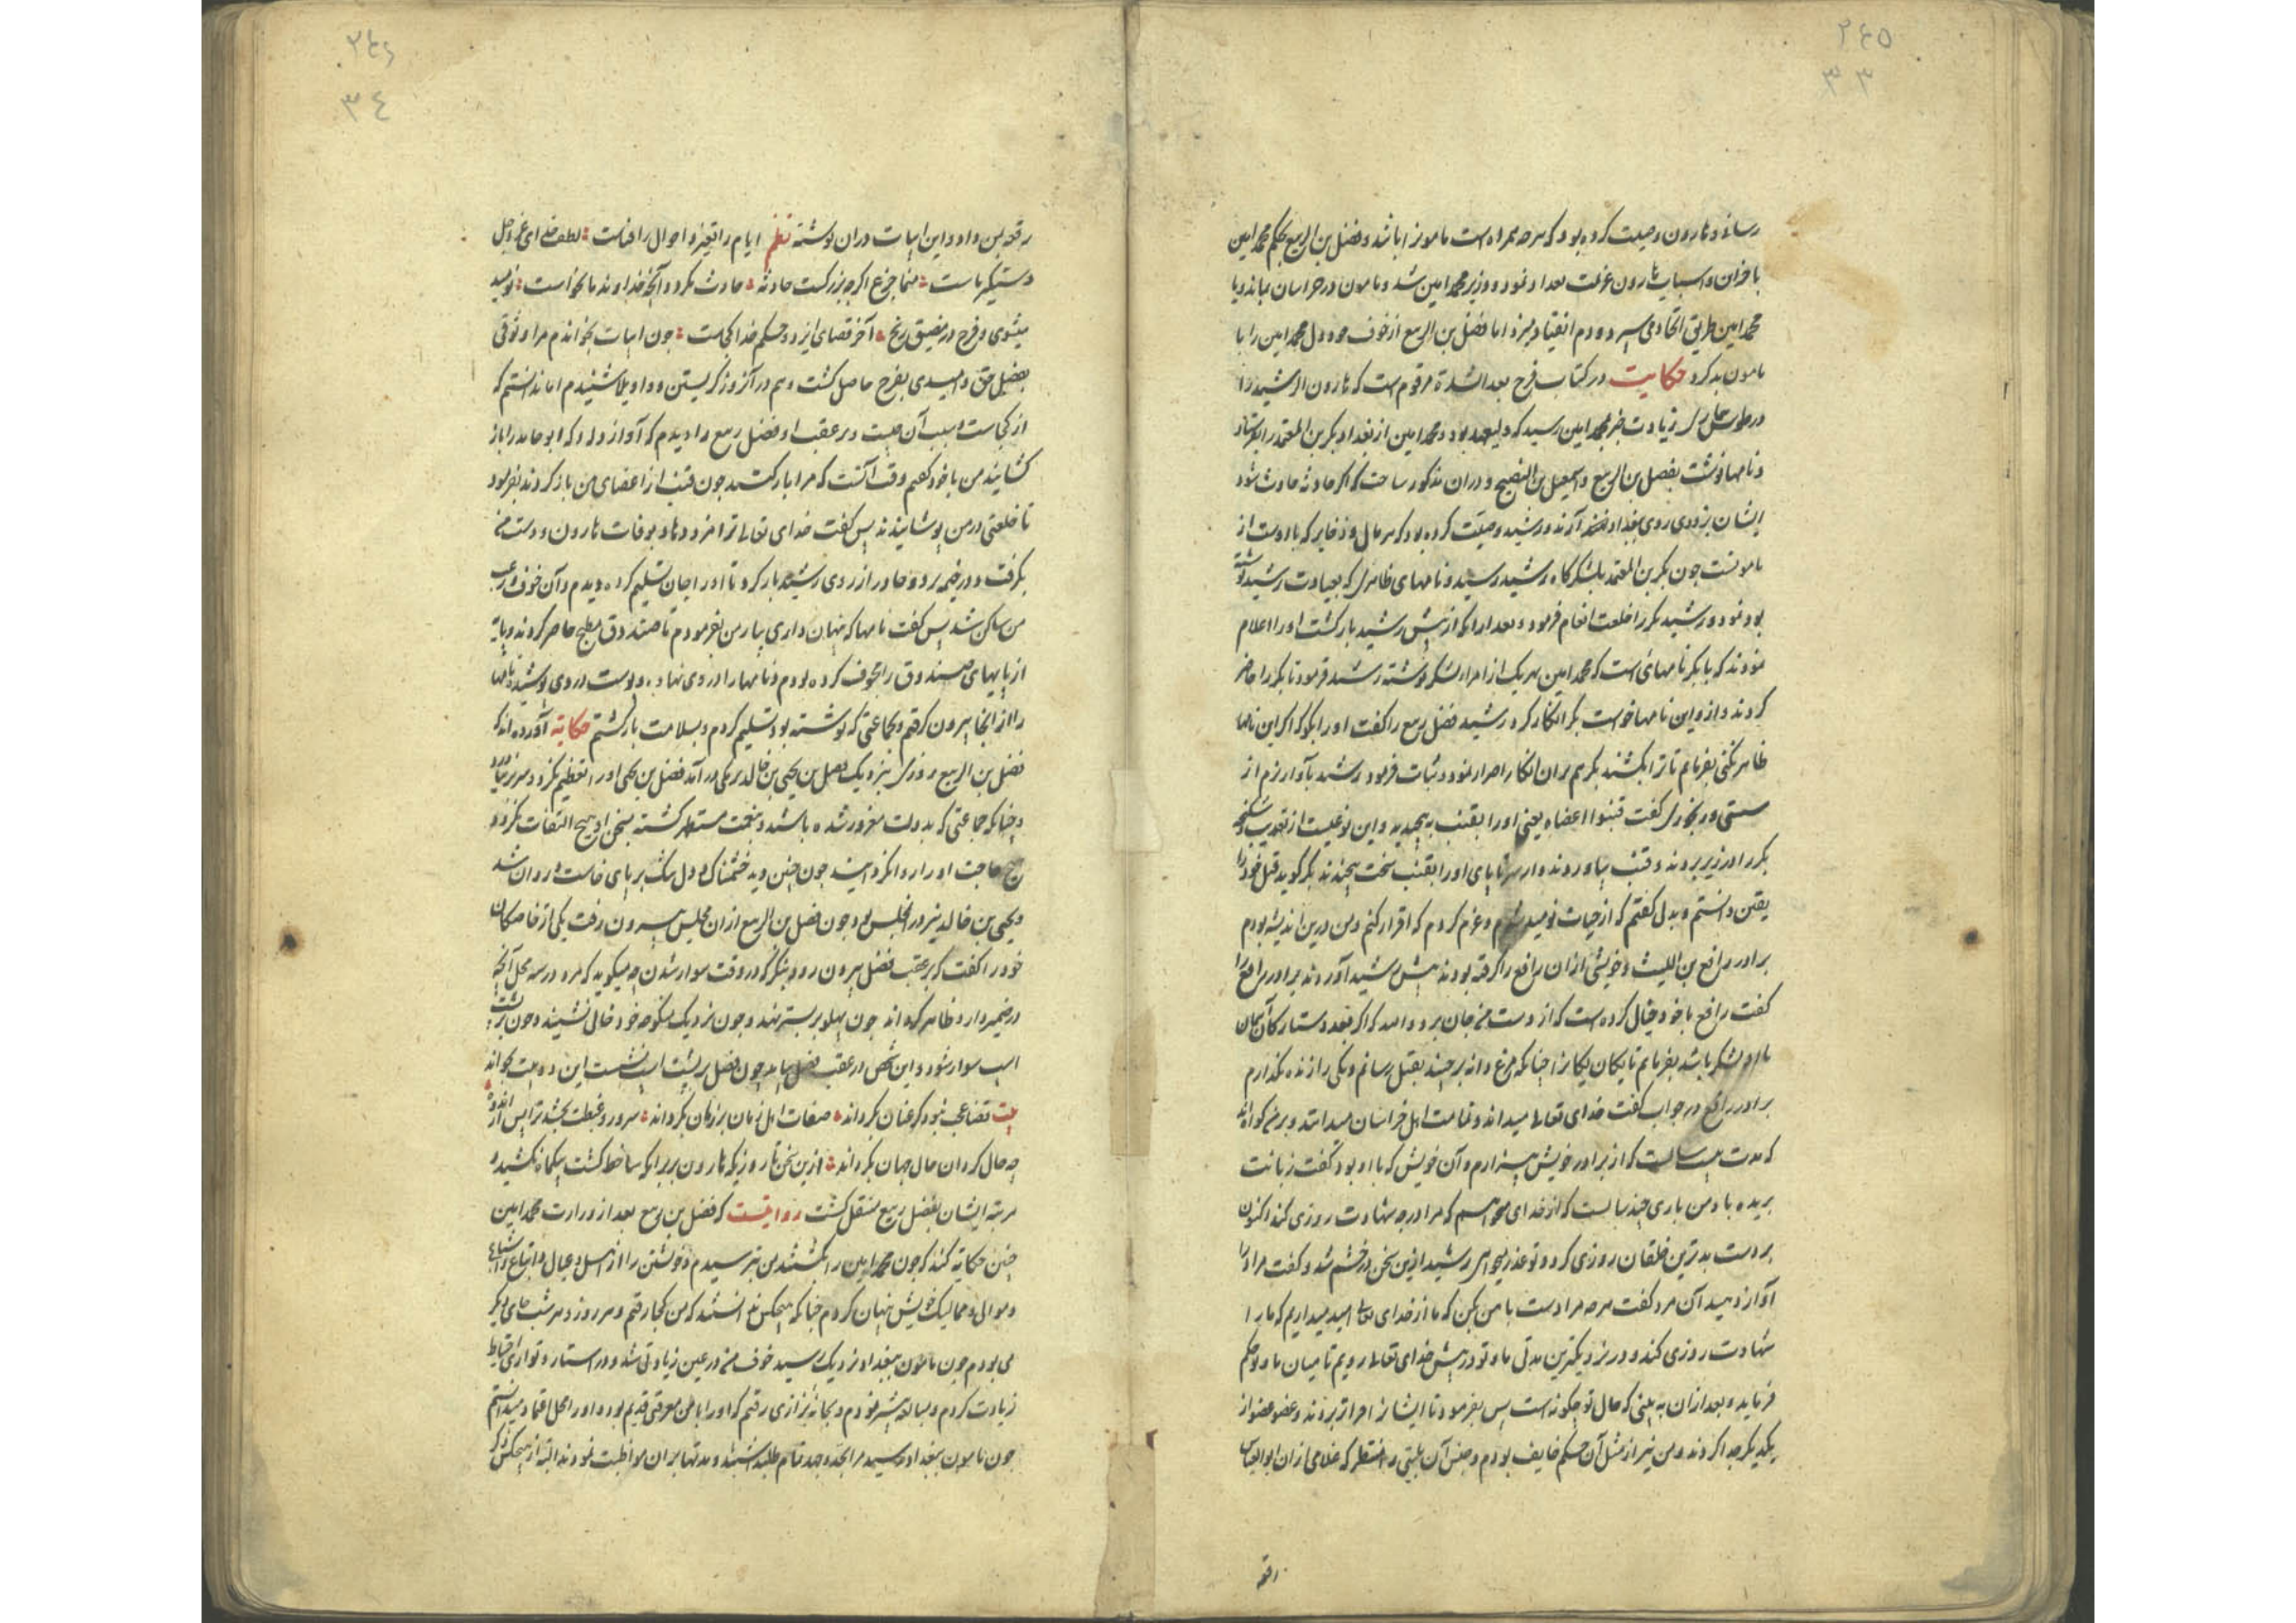 ۲٤٥
۳۳
رساند و هارون وصیت کرده بود که هرچه همراه است مامون را باشد و فضل بن الربیع بحکم محمد امین
با خزان و اسباب هارون عزیمت بغداد نمود و وزیر محمد امین شد و مامون در خراسان بماند و با
محمد امین طریق اتحاد می سپرد و دم انقیاد میزد اما فضل بن الربیع از خوف خود دل محمد امین را با
مامون بد کرد حکایت در کتاب فرج بعد الشدة مرقوم است که هارون الرشید را
در طوس زیادت خبر بمحمد امین رسید که ولیعهد بود و محمد امین از بغداد بکر بن المعتمر را بفرستاد
و نامها نوشت بفضل بن الربیع و اسمعیل بن الصبیح و دران مذکور ساخت که اگر حادثه حادث شود
ایشان بزودی روی ببغداد آرند و رشید وصیت کرده بود که هر مال و ذخایر که با اوست از
مامونست چون بکر بن المعتمر بلشکرگاه رشید رسید و نامهای ظاهر که بعیادت رشید نوشته
بود نمود و رشید بکر را خلعت انعام فرمود و بعد ازانکه از پیش رشید بازگشت او را اعلام
نمودند که با بکر نامهائی است که محمد امین بهر یک از امراء لشکر نوشته رشید فرمود تا بکر را حاضر
کردند و ازو این نامها خواست بکر انکار کرد رشید فضل ربیع را گفت او را بگو که اگر این نامها
ظاهر نکنی بفرمایم تا ترا بکشند بکر هم بران انکار اصرار نمود و ثبات فرمود رشید بآواز نرم از
سستی و رنجوری گفت قنبوا اعضاه یعنی او را بقنب به پیچید و این نوعیست از تعذیب و شکنجه
بکر را در زیر بردند و قنب بیاوردند و از سر تا پای او را بقنب سخت پیچیدند بکر گوید قتل خود را
یقین دانستم و بدل گفتم که از حیات نومید شوم و عزم کردم که اقرار کنم و من درین اندیشه بودم
برادر رافع بن اللیث و خویشی ازان رافع را گرفته بودند پیش رشید آوردند برادر رافع را
گفت رافع با خود خیال کرده است که از دست من جان برد والله که اگر بعدد ستارگان آسمان
با او لشکر باشد بفرمایم تا یکان یکانرا چنانکه مرغ دانه برچیند بقتل رسانم و یکی را زنده نگذارم
برادر رافع در جواب گفت خدای تعالی میداند و تمامت اهل خراسان میدانند و بر من گواه اند
که مدت بیست سالست که از برادر خویش بیزارم و آن خویش که با او بود گفت زبانت
بریده باد من باری چند سالست که از خدای میخواهم که مرا درجه شهادت روزی کند اکنون
بر دست بدترین خلقان روزی کرد و تو عذر میخواهی رشید ازین سخن در خشم شد و گفت مراد را
آواز دهید آن مرد گفت هرچه مرادست با من بکن که ما از خدای تعالی امید میداریم که ما را
شهادت روزی کند و در نزدیکترین مدتی ما و تو در پیش خدای تعالی رویم تا میان ما و تو حکم
فرماید و بعد ازان به بینی که حال تو چگونه است پس بفرمود تا ایشانرا فراتر بردند و عضو عضو از
یکدیگر جدا کردند و من نیز از مثل آن حکم خایف بودم و جنس آن بلیتی را منتظر که غلامی ازان ابو العتاهی
رقعه
۲٤٦
۳٤
رقعه بمن داد و این ابیات دران نوشته نظم ایام را تغیر و احوال را فناست لطف خدای عز و جل
دستگیر ماست منما جزع اگرچه بزرگست حادثه حادث نگردد آنچه خداوند ما نخواست نومید
میشوی و فرح در مضیق رنج آخر قضای ایزد و حکم خدا کجاست چون ابیات بخواندم مرا وثوقی
بفضل حق و امیدی بفرج حاصل گشت و هم در آنروز گریستن و واویلا شنیدم اما ندانستم که
از کجاست و سبب آن چیست و بر عقب او فضل ربیع را دیدم که آواز داد که ابو حامد را باز
گشایند من با خود گفتم وقت آنست که مرا باز کشند چون قنب از اعضای من باز کردند بفرمود
تا خلعتی در من پوشانیدند پس گفت خدای تعالی ترا مزد دهاد بوفات هارون و دست من
بگرفت و در خیمه برد و چادر از روی رشید باز کرد تا او را جان تسلیم کرده دیدم و آن خوف و رعب
من ساکن شد پس گفت نامها که پنهان داری بیار من بفرمودم تا صندوق مطبخ حاضر کردند و پایه
از پایهای صندوق را مجوف کرده بودم و نامها را در وی نهاده و پوست در وی پوشیده نامها
را از انجا بیرون گرفتم و بجماعتی که نوشته بود تسلیم کردم و بسلامت بازگشتم حکایة آورده اند که
فضل بن الربیع روزی بنزدیک فضل بن یحیی بن خالد برمکی در آمد فضل بن یحیی او را تعظیم نکرد و سر بر نیاورد
و چنانکه جماعتی که بدولت مغرور شده باشند و بنعمت مستظهر گشته بسخن او هیچ التفات نکرد و
هیچ حاجت او را روا نگردانید چون چنین دید خشمناک و دل تنگ بر پای خاست و روان شد
و یحیی بن خالد نیز در ان مجلس بود چون فضل بن الربیع ازان مجلس بیرون رفت یکی از خاصگان
خود را گفت که بر عقب فضل بیرون رو و بنگر که در وقت سوار شدن چه میگوید که مرد در سه محل آنچه
در ضمیر دارد ظاهر گرداند چون پهلو بر بستر نهد و چون نزدیک منکوحه خود خالی نشیند و چون بر پشت
اسب سوار شود و این شخص در عقب فضل بیامد چون فضل بر پشت اسب نشست این دو بیت بخواند
بیت قضا عجب نبود گر عنان بگرداند صفات اهل زمان بر زمان بگرداند سرور و غبطت بخشد ترا پس از اندوه
چه حال گردان حال جهان بگرداند ازین سخن تا روزیکه هارون بر برامکه ساخط گشت یکماه نکشید و
مرتبه ایشان بفضل ربیع منتقل گشت روایتست که فضل بن ربیع بعد از وزارت محمد امین
چنین حکایة کند که چون محمد امین را بکشتند من بترسیدم و خویشتن را از اهل و عیال و اتباع و اشیاع
و موالی و ممالیک خویش پنهان کردم چنانکه هیچکس ندانستند که من کجا رفتم و هر روز و هر شب جای دیگر
می بودم چون مامون ببغداد نزدیک رسید خوف من در عین زیادتی شد و در استتار و تواری احتیاط
زیادت کردم و مبالغه بیشتر نمودم و بخانه بزازی رفتم که او را با من معرفتی قدیم بود و او را محل اعتماد میدانستم
چون مامون ببغداد رسید مرا بجد و جهد تمام طلب داشتند و مدتها بران مواظبت نمودند البته از هیچکس ذکر